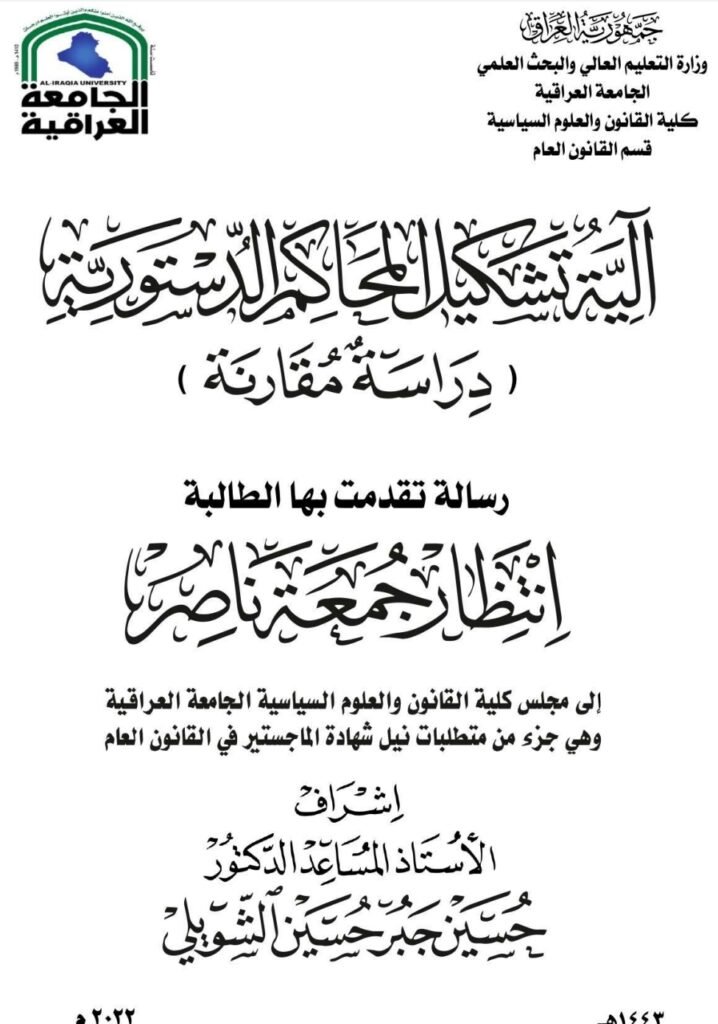 جمهورية العراق
وزارة التعليم العالي والبحث العلمي
الجامعة العراقية
كلية القانون والعلوم السياسية
قسم القانون العام
AL-IRAQIA UNIVERSITY
الجامعة
العراقية
آلِيَّةُ تَشكيل المحَاكِم الدُّسْتورِيَّةِ
( دِرَاسَةٌ مُقَارنَة )
رسالة تقدمت بها الطالبة
اِنْتِظَار جُمعَة نَاصِر
إلى مجلس كلية القانون والعلوم السياسية الجامعة العراقية
وهي جزء من متطلبات نيل شهادة الماجستير في القانون العام
اِشْرَاف
الأسْتَاذ المسَاعِد الدَّكتوُر
حُسَين جَبُر حُسَين الشّوَيلي
١٤٤٣هـ
٢٠٢٢ م